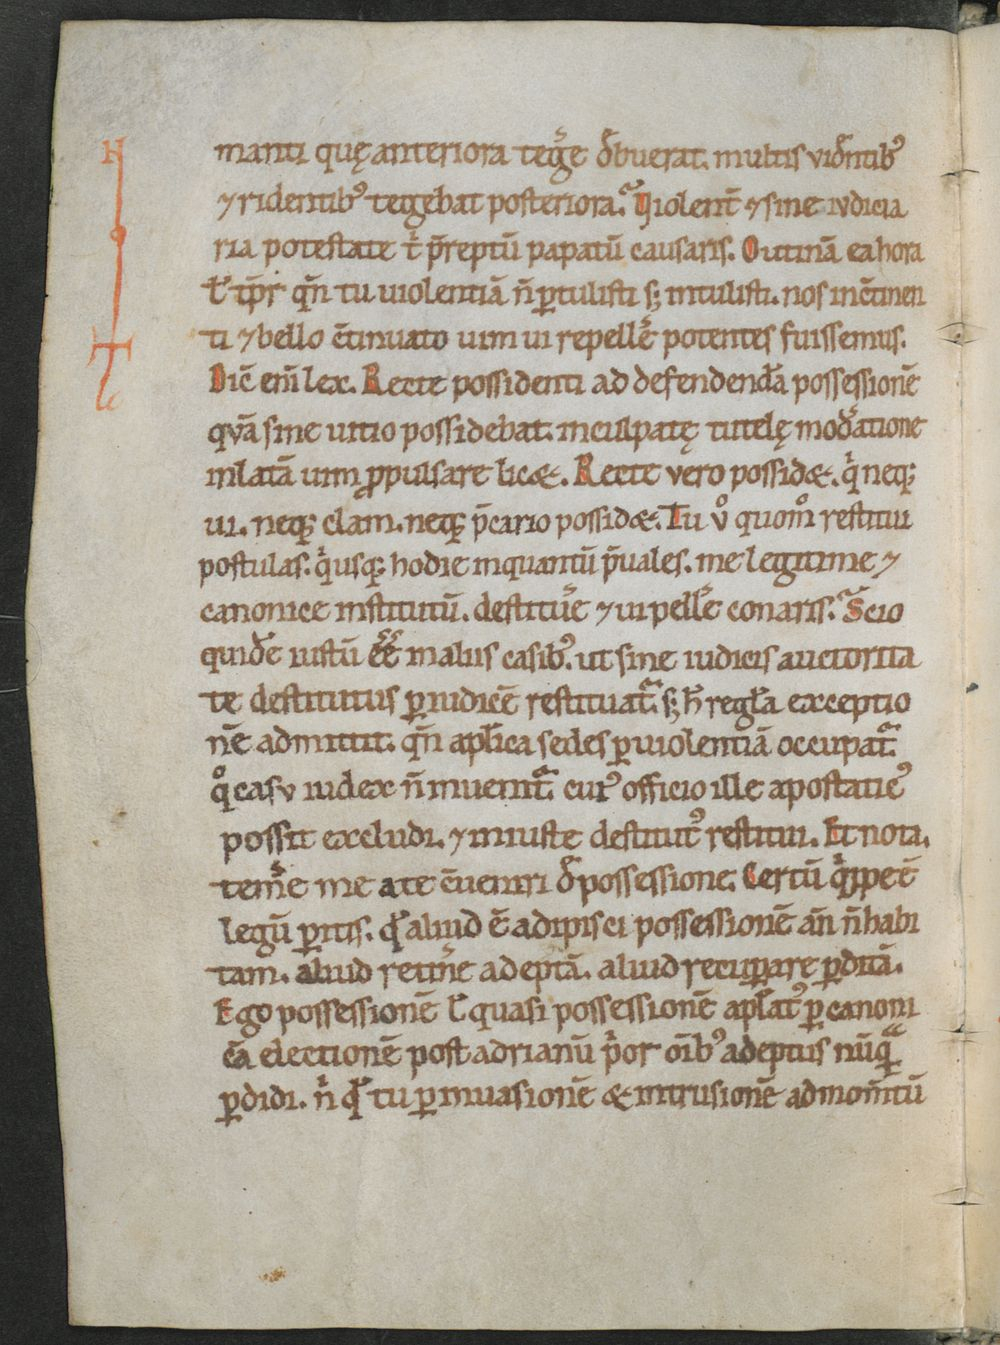 manti quę anteriora teg̃e d̃buerat. multis vid̃ntib᷒
⁊ ridentib᷒ tegebat posteriora. Uiolent̃ ⁊ sine iudicia
ria potestate t̃ p̃reptū papatū causaris. O utinā ea hora
ł tp̃r qñ tu uiolentiā ñ ꝑtulisti sꝫ intulisti. nos inc̃tinen
ti ⁊ bello c̃tinuato uim ui repellẽ potentes fuissemus.
Dic̃ em̃ lex. Recte possidenti ad defendend̃a possessionē
qvā sine uitio possidebat. inculpatę tutelę mod̃atione
inlatā uim ꝓpulsare lic&. Recte vero possid&. qͥ neqꝫ
ui. neqꝫ clam. neqꝫ p̃cario possid&. Tu vͦ quom̊ restitui
postulas. qͥusqꝫ hodie inquantū p̃uales. me legitime ⁊
canonice institutū. destitũe ⁊ ui pellẽ conaris. Scio
quid̃e iustū ẽẽ in aliis casib᷒. ut sine iudicis auctorita
te destitutus ꝑ iudicē restituat̃. sꝫ h̃ regl̃a exceptio
nē admittit. qñ apl̃ica sedes ꝑ uiolentiā occupat̃.
qͦ casv iudex ñ inuenit̃. cui᷒ officio ille apostatic᷒
possit excludi. ⁊ iniuste destitut᷒ restitui. Et nota.
tem̃e me a te c̃ueniri d̃ possessione. Certū qͥppe ē
legū ꝑitis. qđ aliud ē adipisci possessionē añ ñ habi
tam. aliud retin̄e adeptā. aliud recuꝑare ꝑditā.
Ego possessionē ł quasi possessionē apl̃at᷒ ꝑ canoni
cā electionē post adrianū p̃or oīb᷒ adeptus nūqͣ
ꝑdidi. ñ qđ tu ꝑ inuasionē & intrusionē ad mom̃tū